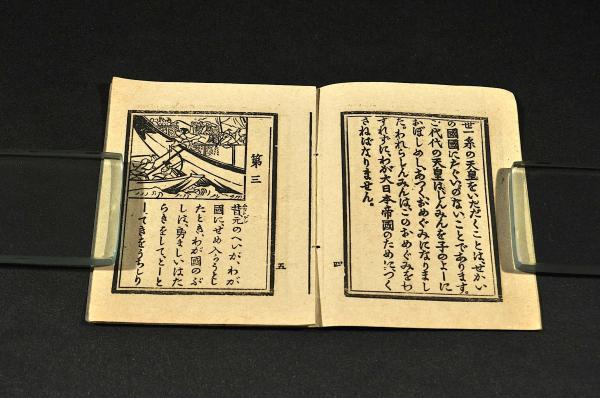 世一系の天皇をいただくことは、せかい
の國國にたぐひのないことであります。
ご代代の天皇は、しんみんを子のよーに
おぼしめし、あつくおめぐみになりまし
た。われらしんみんは、このおめぐみをわ
すれずに、わが大日本帝國のためにつく
さねばなりません。
四
第三
昔元のへいが、わが
國にせめ入らうとし
たとき、わが國のぶ
しは、勇ましいはた
らきをして、とーと
ーてきをうちとり
五